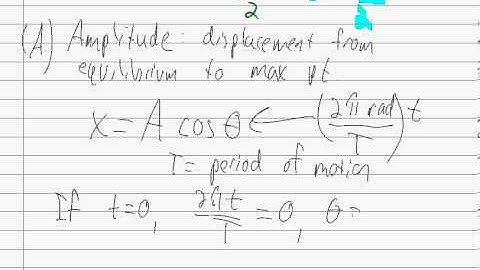 2
(A) Amplitude: displacement from
equilibrium to max pt.
x = A cos θ ← (2π rad / T) t
T = period of motion
If t=0, 2πt / T = 0, θ =